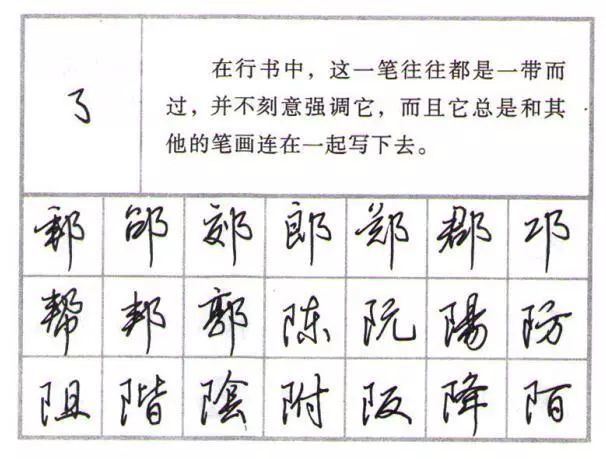 在行书中，这一笔往往都是一带而
过，并不刻意强调它，而且它总是和其
他的笔画连在一起写下去。
邰 郊 郎 郑 郡 邛
帮 邦 郭 陈 阮 陽 防
阻 階 陰 附 阪 降 陌